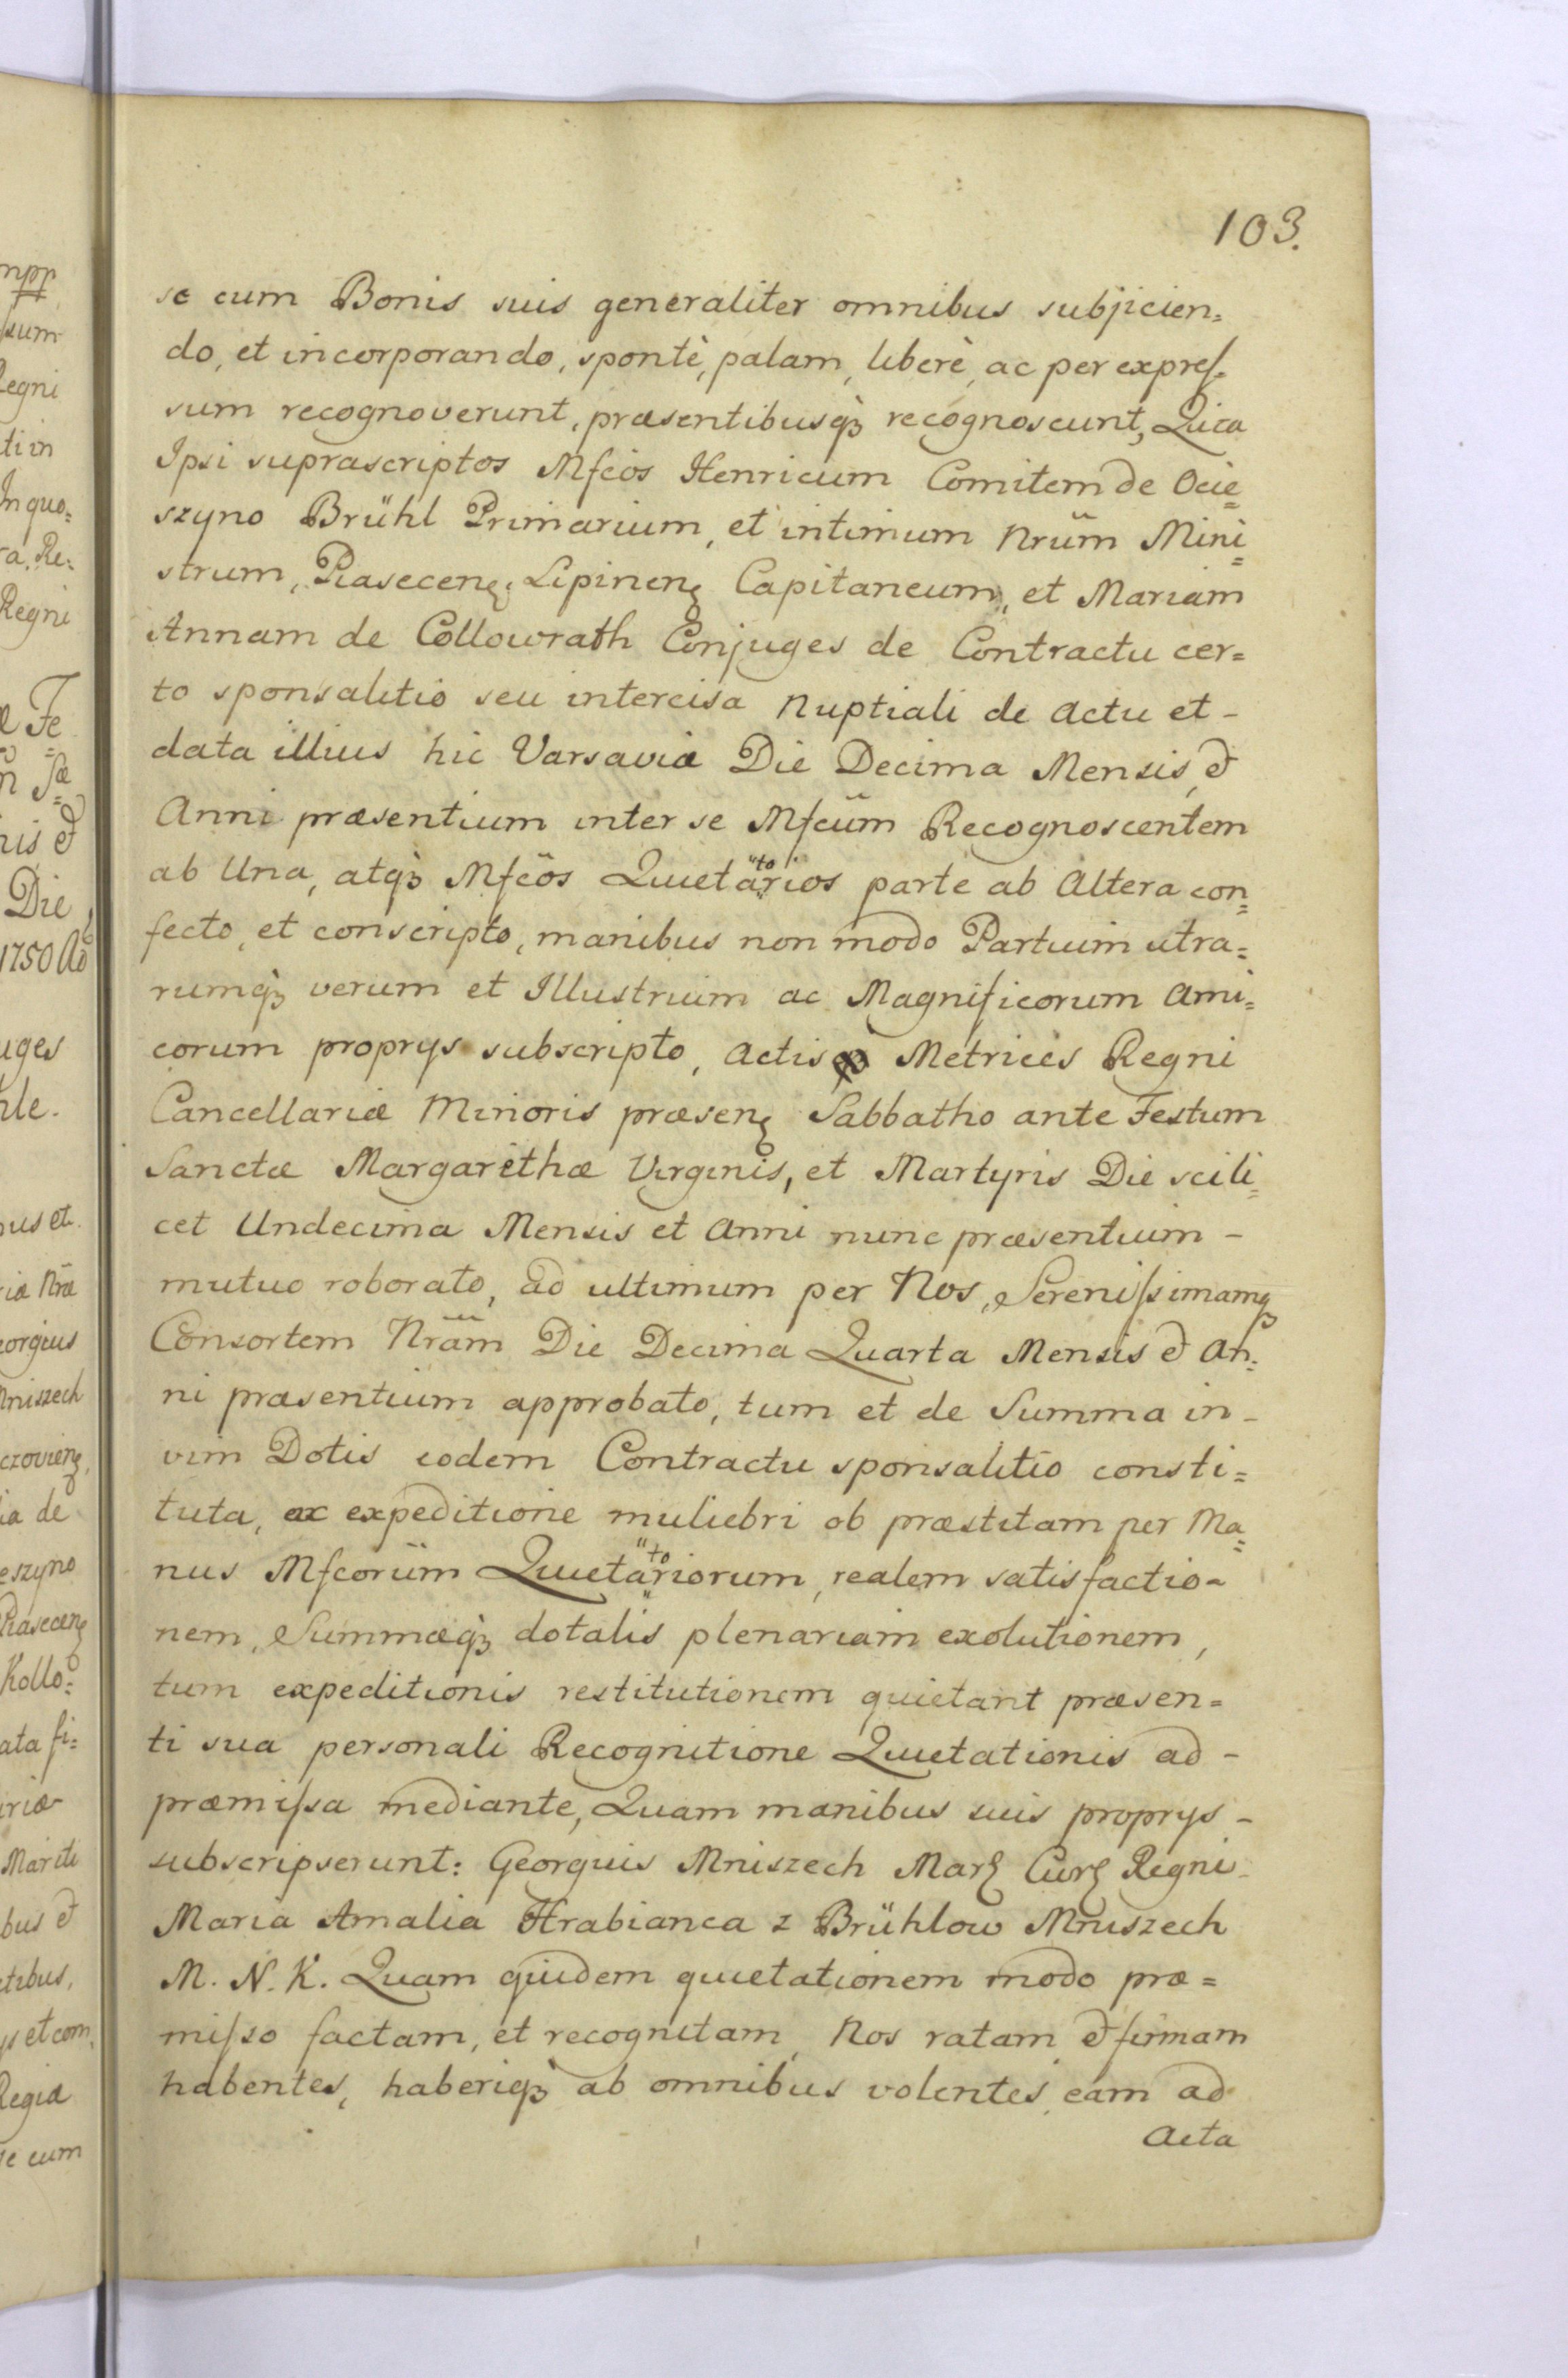 103.
se cum Bonis suis generaliter omnibus subjicien=
do, et incorporando, spontè, palam, liberè, ac per expres=
sum recognoverunt, præsentibusq́ꝫ recognoscunt, Quia
Ipsi suprascriptos Mfcos Henricum Comitem de Ocie=
szyno Brühl Primarium, et intimum Nrum̃ Mini=
strum, Piaseceñ, Lipineñ Capitaneum, et Mariam
Annam de Collowrath Conjuges de Contractu cer=
to sponsalitio seu intercisa Nuptiali de Actu et -
data illius hic Varsaviæ Die Decima Mensis, &
Anni præsentium inter se Mfcum̃ Recognoscentem
ab Una, atq́ꝫ Mfcõs Quietätorios parte ab Altera con=
fecto, et conscripto, manibus non modo Partium utra=
rumq́ꝫ verum et Illustrium ac Magnificorum Ami=
corum proprys subscripto, Actisqꝫ Metrices Regni
Cancellariæ Minoris præseñ Sabbatho ante Festum
Sanctæ Margarethæ Virginis, et Martyris Die scili=
cet Undecima Mensis et Anni nunc præsentium -
mutuo roborato, ad ultimum per Nos, Serenissimamqꝫ
Consortem Nram̃ Die Decima Quarta Mensis & An=
ni præsentium approbato, tum et de Summa in -
vim Dotis eodem Contractu sponsalitio consti=
tuta, ac expeditione muliebri ob præstitam per Ma=
nus Mfcorum̃ Quietatoriorum, realem satisfactio=
nem, Summæq́ꝫ dotalis plenariam exolutionem,
tum expeditionis restitutionem quietant præsen=
ti sua personali Recognitione Quietationis ad -
præmissa mediante, Quam manibus suis proprys -
subscripserunt: Georgius Mniszech Mar: Cur: Regni
Maria Amalia Hrabianca z Brühlow Mniszech
M. N. K. Quam quidem quietationem modo præ=
misso factam, et recognitam, Nos ratam & firmam
habentes, haberiq́ꝫ ab omnibus volentes, eam ad
Acta